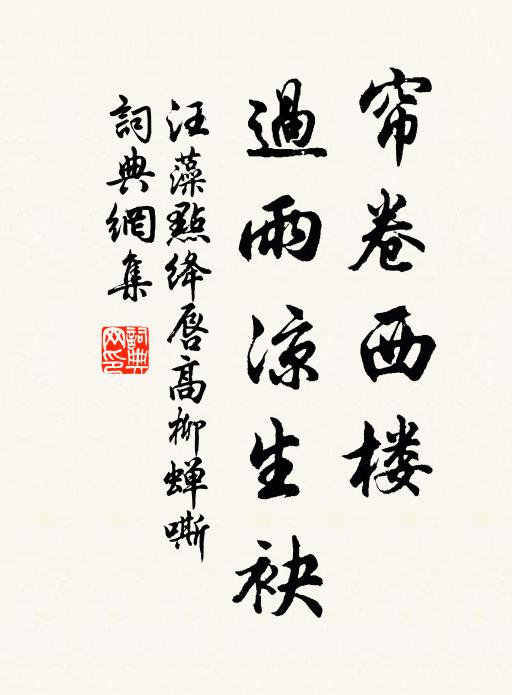 帘卷西楼
過雨凉生袂
汪藻點绛唇高柳蝉嘶
詞典網集
詞典網印